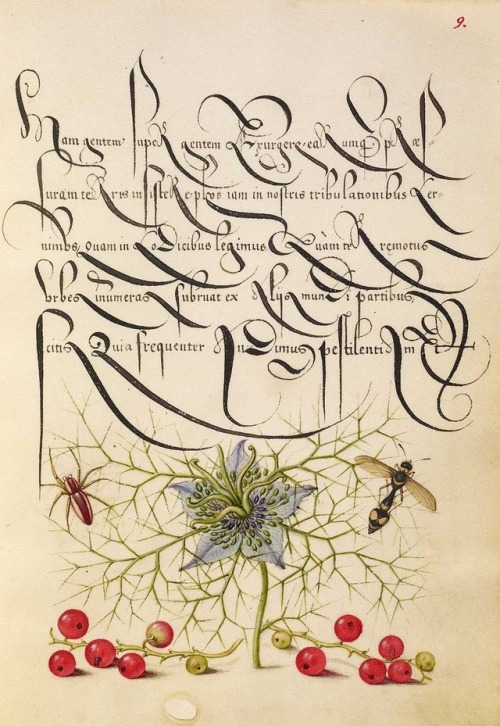 Nam gentem super gentem exurgere, earumq præs-
suram terris insistere plus iam in nostris tribulationibus cer-
nimus, Quam in codicibus legimus Quàm terre remotus
Urbes innumeras subruat ex alys mundi partibus,
scitis Quia frequenter audiuimus pestilentiam Et
9.